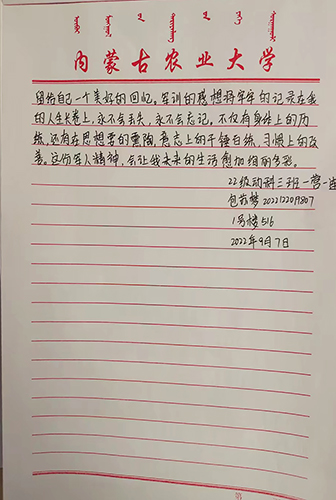 内蒙古农业大学
留给自己一个美好的回忆。军训的感想将牢牢的记录在我
的人生长卷上，永不会丢失，永不会忘记，不仅有身体上的历
练，还有在思想层的熏陶，意志上的千锤百练，习惯上的改
善。这份军人精神，会让我未来的生活愈加绚丽多彩。
22级动科三班一营一连
包菲梦 2022122019807
1号楼516
2022年9月7日
第